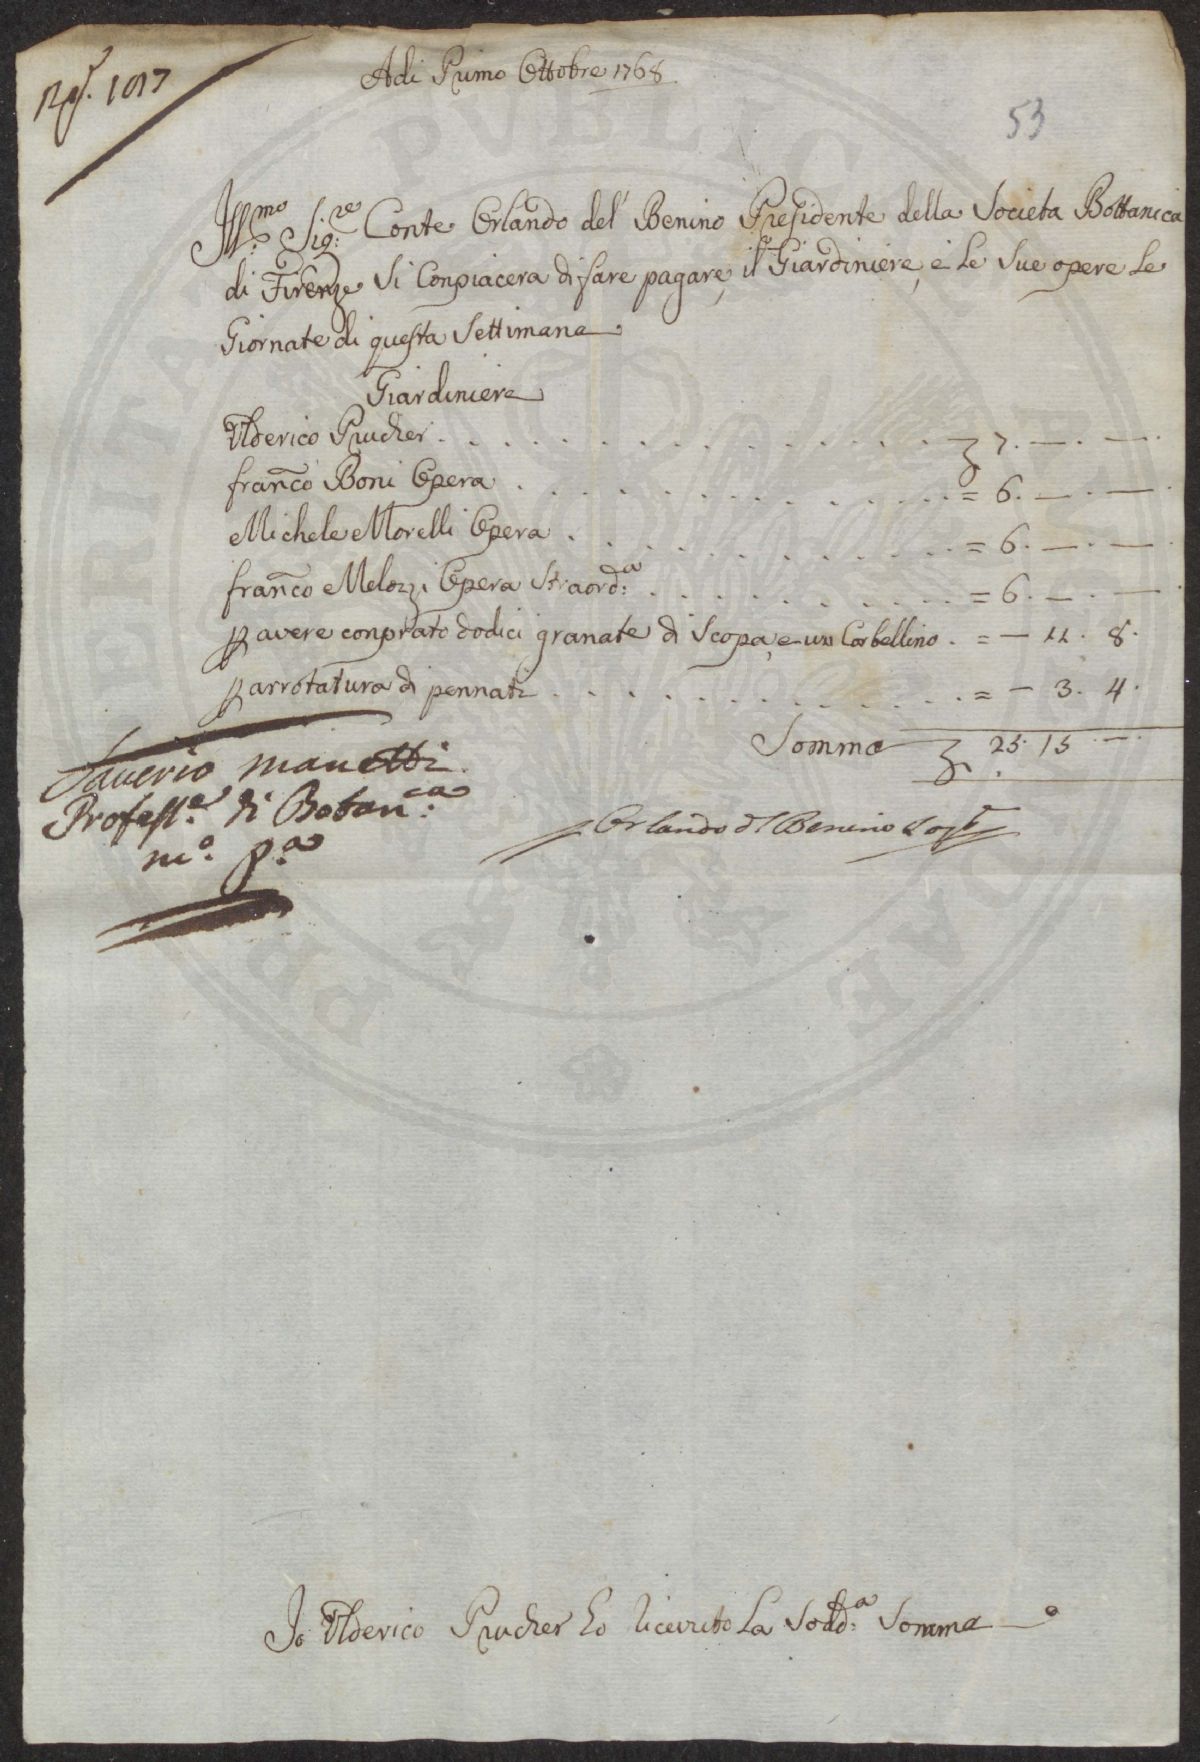 1017
Adi Primo Ottobre 1768
53
Ill:mo Sig:re Conte Orlando del' Benino Presidente della Societa Bottanica
di Firenze Si Conpiacera di fare pagare, il Giardiniere, e Le Sue opere Le
Giornate di questa Settimana
Giardiniere
Ulderico Prucher . . . . . . . . . . . . . 7. — . — .
franco Boni Opera . . . . . . . . . . . = 6. — . — .
Michele Morelli Opera . . . . . . . . . . = 6. — . — .
franco Melozzi Opera Straord:a . . . . . . . . = 6. — . — .
p avere conprato dodici granate di Scopa, e un Corbellino . = — 11. 8.
p arrotatura di pennati . . . . . . . . . . = — 3. 4.
Somma 25. 15 —
Saverio Manetti
Profess:e di Botan:ca
m:o p:a
Orlando dl Benino
Io Ulderico Prucher ho ricevuto La Sodd:a Somma